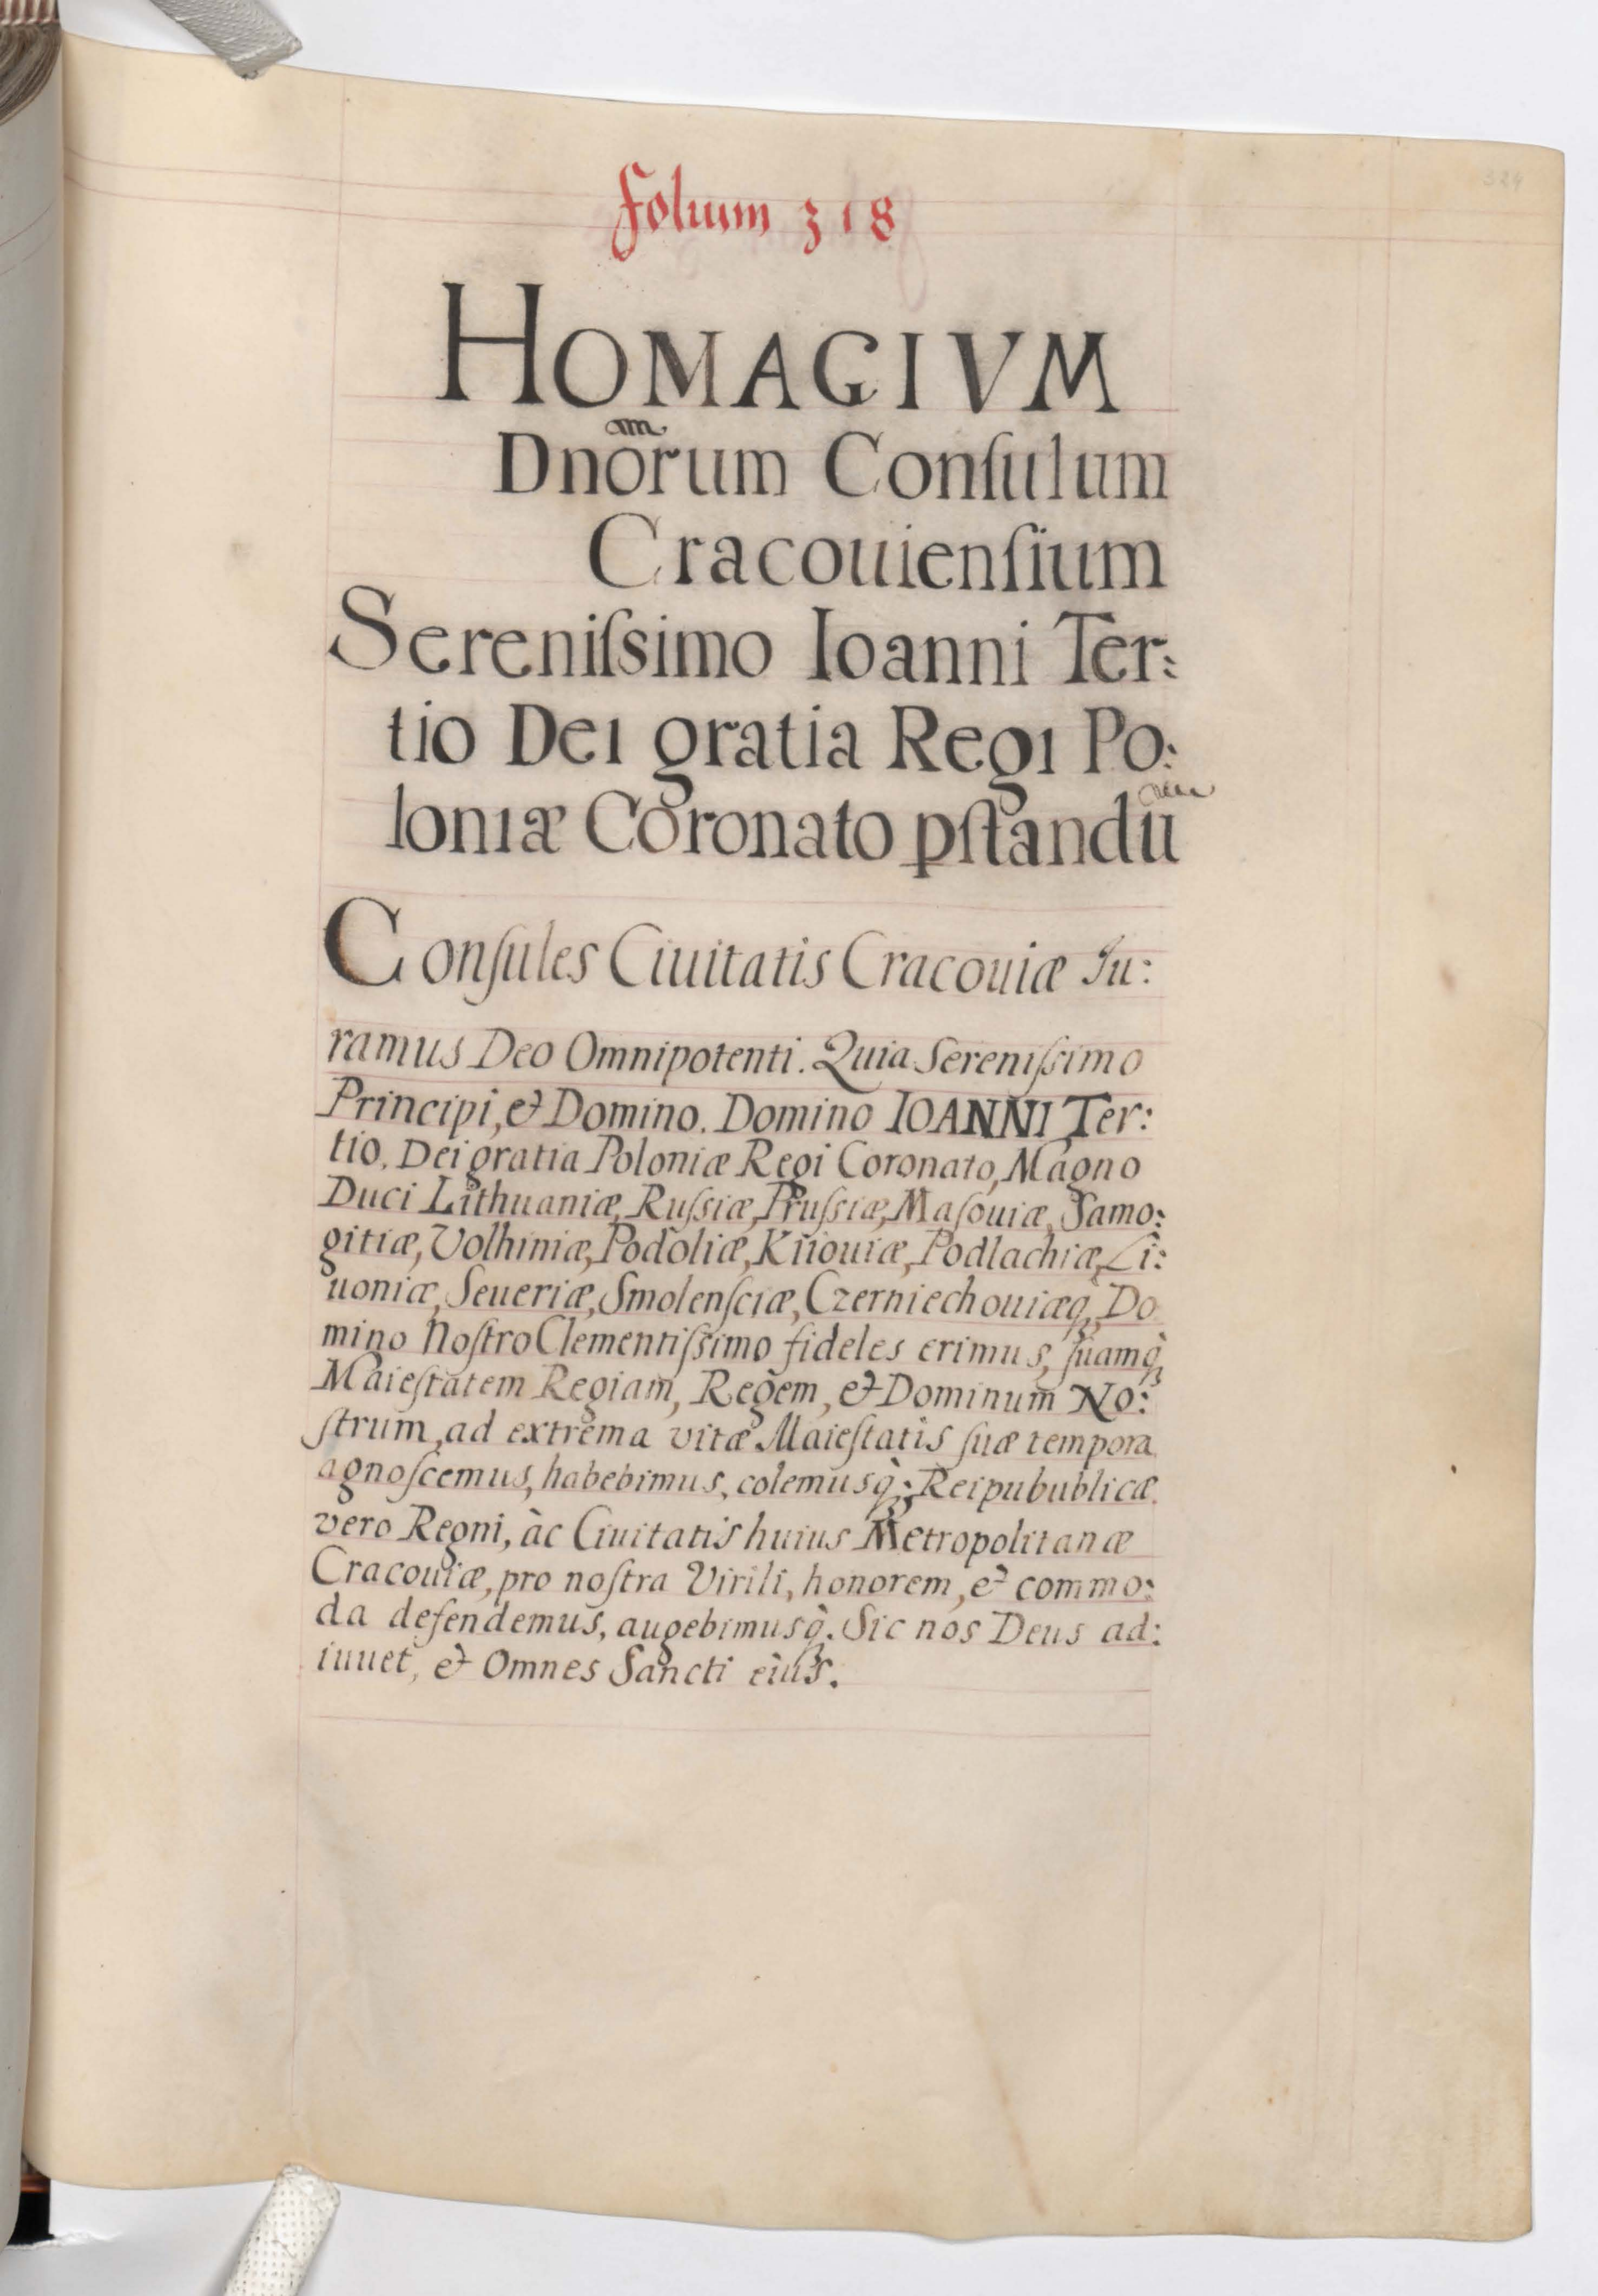 324
Folium 318
HOMAGIVM
Dnõrum Conſulum
Cracouienſium
Sereniſsimo Ioanni Ter:
tio Dei gratia Regi Po:
loniæ Coronato pſtandũ
Conſules Ciuitatis Cracouiæ Iu:
ramus Deo Omnipotenti. Quia Sereniſsimo
Principi, et Domino. Domino IOANNI Ter:
tio, Dei gratia Poloniæ Regi Coronato, Magno
Duci Lithuaniæ, Ruſsiæ, Pruſsiæ, Maſouiæ, Samo:
gitiæ, Volhiniæ, Podoliæ, Kijouiæ, Podlachiæ, Li:
uoniæ, Seueriæ, Smolenſciæ, Czerniechouiæq, Do
mino Noſtro Clementiſsimo fideles erimus, ſuamq̀
Maieſtatem Regiam, Regem, et Dominum No:
ſtrum, ad extrema vitæ Maieſtatis ſuæ tempora
agnoſcemus, habebimus, colemusq̀; Reipubublicæ
vero Regni, àc Ciuitatis huius Metropolitanæ
Cracouiæ, pro noſtra Virili, honorem, et commo:
da defendemus, augebimusq̀. Sic nos Deus ad:
iuuet, et Omnes Sancti eius.